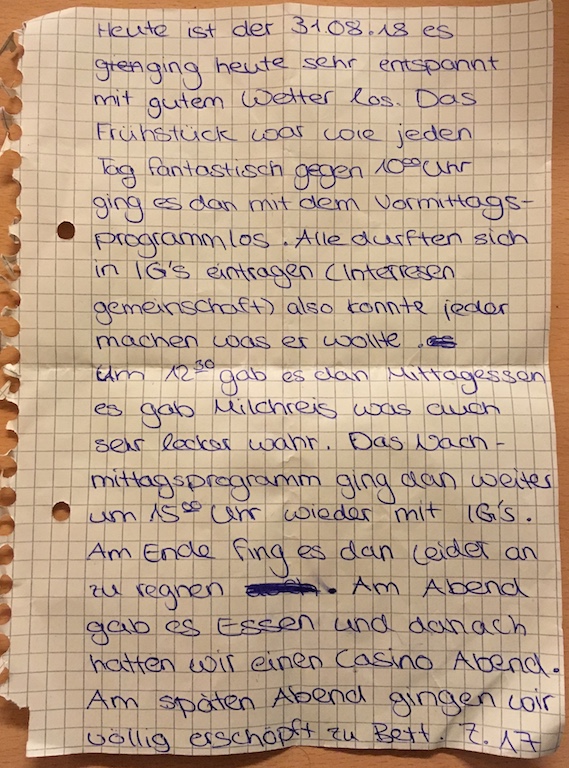 Heute ist der 31.08.18 es
ging heute sehr entspannt
mit gutem Wetter los. Das
Frühstück war wie jeden
Tag fantastisch gegen 10⁰⁰ Uhr
ging es dan mit dem Vormittags-
programm los. Alle durften sich
in IG's eintragen (Interresen
gemeinschaft) also konnte jeder
machen was er wollte.
Um 12³⁰ gab es dan Mittagessen
es gab Milchreis was auch
sehr lecker wahr. Das Nach-
mittagsprogramm ging dan weiter
um 15⁰⁰ Uhr wieder mit IG's.
Am Ende fing es dan leider an
zu regnen. Am Abend
gab es Essen und danach
hatten wir einen Casino Abend.
Am späten Abend gingen wir
völlig erschöpft zu Bett. Z. 17